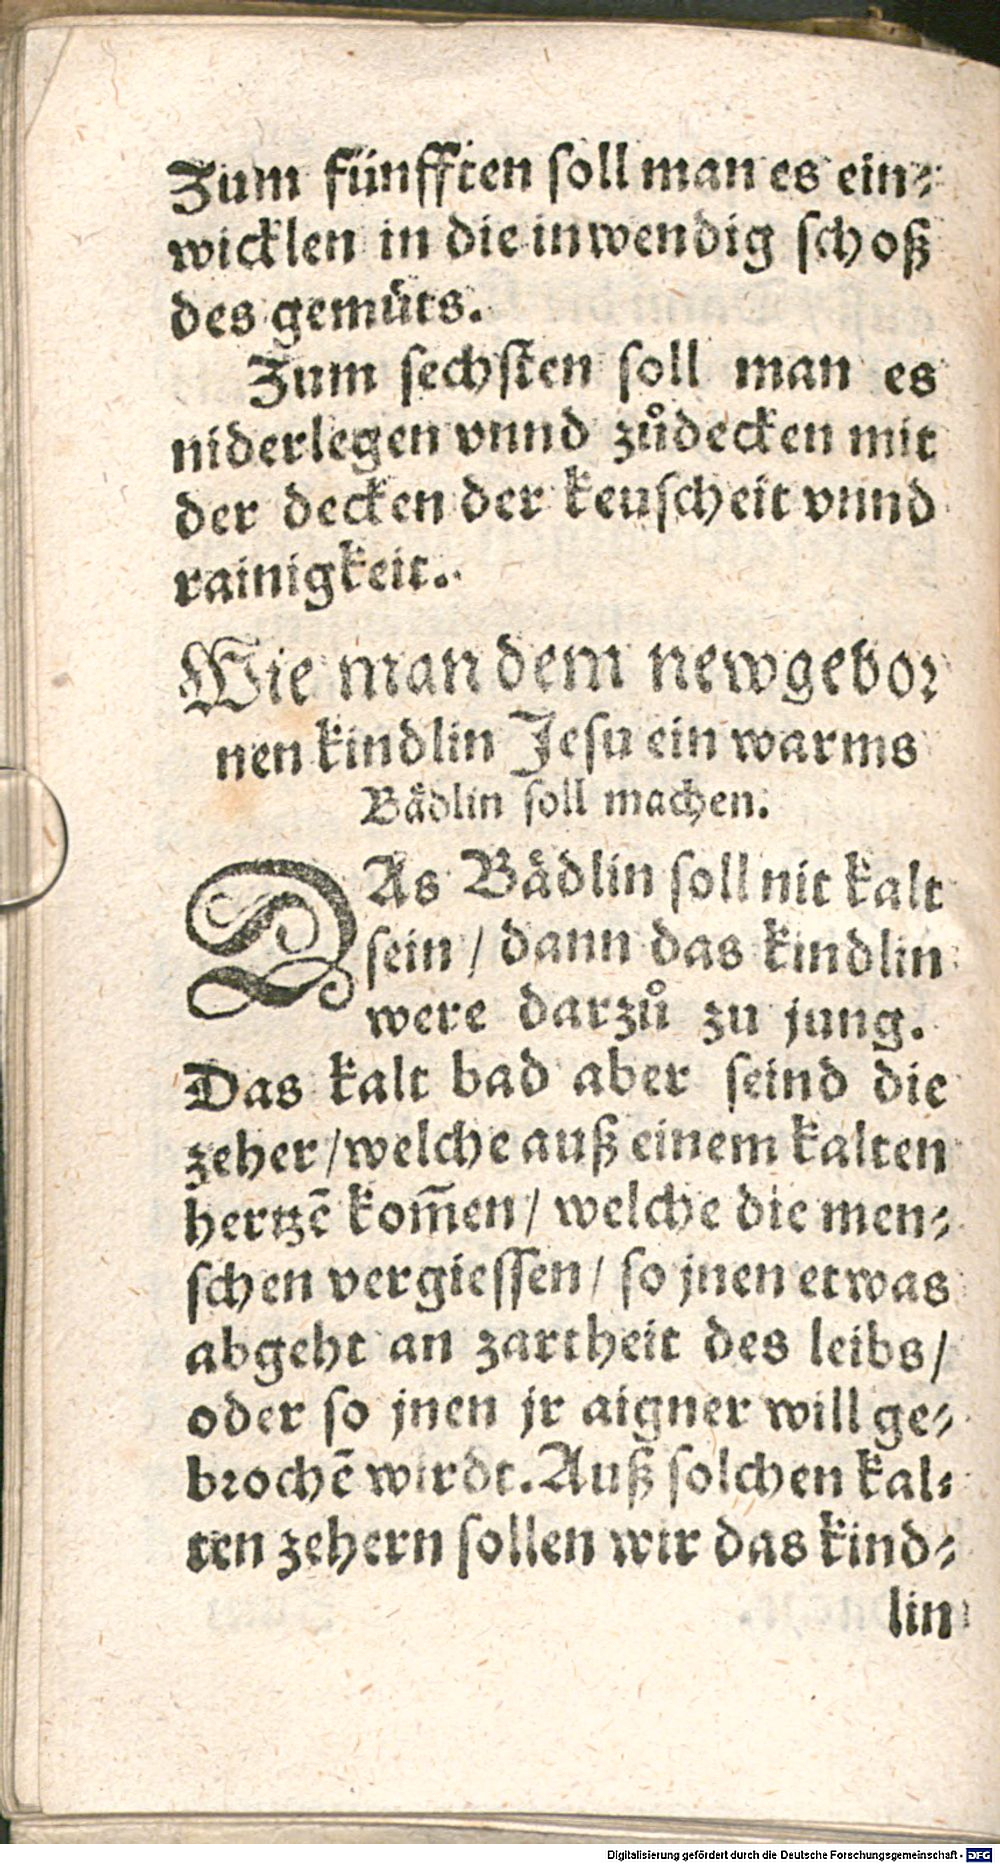 Zum fünfften soll man es ein⸗
wicklen in die inwendig schoß
des gemüts.
Zum sechsten soll man es
niderlegen vnnd zůdecken mit
der decken der keuscheit vnnd
rainigkeit.
Wie man dem newgebor
nen kindlin Jesu ein warms
Bådlin soll machen.
DAs Bådlin soll nit kalt
sein / dann das kindlin
were darzů zu jung.
Das kalt bad aber seind die
zeher / welche auß einem kalten
hertzē kom̄en / welche die men⸗
schen vergiessen / so jnen etwas
abgeht an zartheit des leibs /
oder so jnen jr aigner will ge⸗
brochē wirdt. Auß solchen kal⸗
ten zehern sollen wir das kind⸗
lin
Digitalisierung gefördert durch die Deutsche Forschungsgemeinschaft - DFG